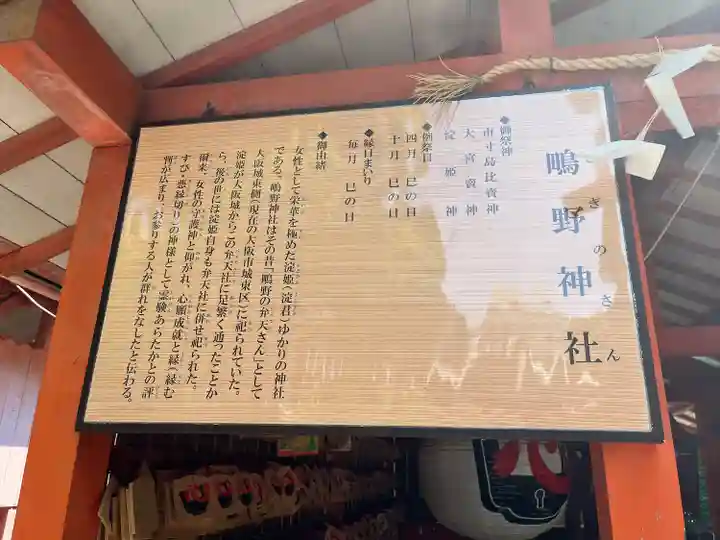 鴫野神社
しぎのさん
◆御祭神
市寸島比賣神
大宮賣神
淀姫神
◆例祭日
四月 巳の日
十月 巳の日
◆縁日まいり
毎月 巳の日
◆御由緒
女性として栄華を極めた淀姫(淀君)ゆかりの神社
である。鴫野神社はその昔「鴫野の弁天さん」として
大阪城東側(現在の大阪市城東区)に祀られていた。
淀姫が大阪城からこの弁天社に足繁く通ったことか
ら、後の世には淀姫自身も弁天社に併せ祀られた。
爾来、女性の守護神と仰がれ、心願成就と縁(縁む
すび・悪縁切り)の神様として霊験あらたかとの評
判が広まり、お参りする人が群れをなしたと伝わる。